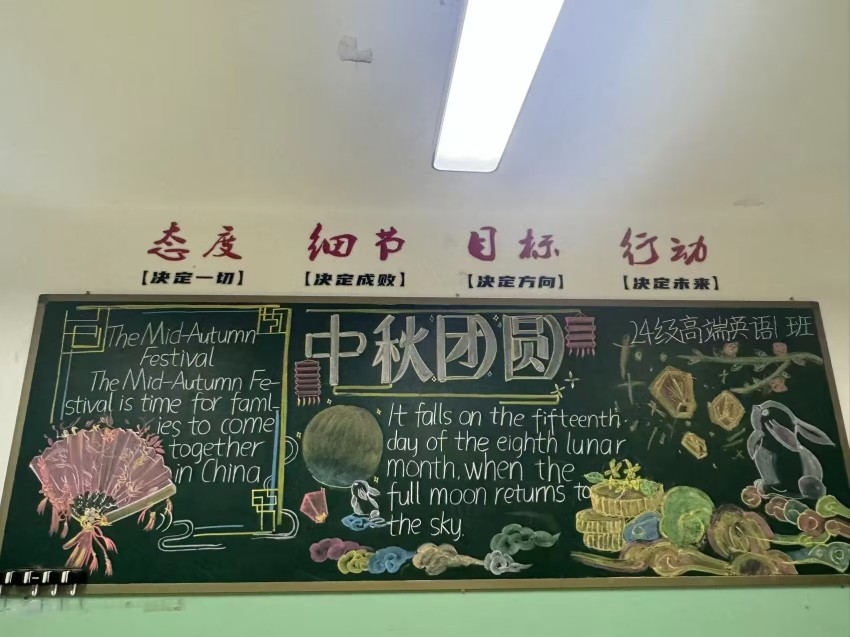 态度 细节 目标 行动
【决定一切】 【决定成败】 【决定方向】 【决定未来】
中秋团圆
24级高端英语1班
The Mid-Autumn
Festival
The Mid-Autumn Fe-
stival is time for famil-
ies to come
together
in China
It falls on the fifteenth
day of the eighth lunar
month, when the
full moon returns to
the sky.